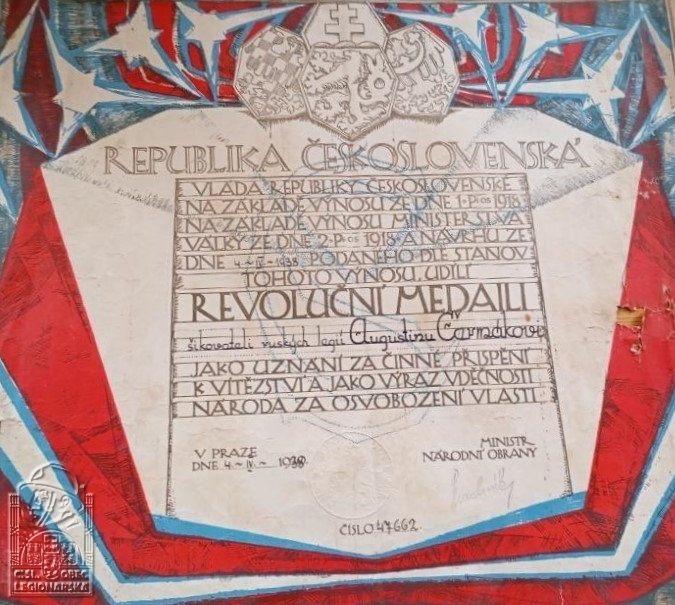 REPUBLIKA ČESKOSLOVENSKÁ
VLÁDA REPUBLIKY ČESKOSLOVENSKÉ
NA ZÁKLADĚ VÝNOSU ZE DNE 1·P·OS 1918
NA ZÁKLADĚ VÝNOSU MINISTERSTVA
VÁLKY ZE DNE 2·P·OS 1918·A NÁVRHU ZE
DNE 4.~IV.~1938 PODANÉHO DLE STANOV
TOHOTO VÝNOSU, UDÍLÍ
REVOLUČNÍ MEDAILI
šikovateli ruských legií Augustinu Čarmákovi
JAKO UZNÁNÍ ZA ČINNÉ PŘISPĚNÍ
K VÍTĚZSTVÍ A JAKO VÝRAZ VDĚČNOSTI
NÁRODA ZA OSVOBOZENÍ VLASTI
V PRAZE
DNE 4.~IV.~ 1938.
MINISTR
NÁRODNÍ OBRANY
ČÍSLO 47662.
ČSL. OBEC
LEGIONÁŘSKÁ